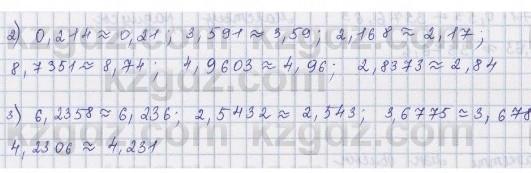 2) 0,214 ≈ 0,21; 3,591 ≈ 3,59; 2,168 ≈ 2,17;
8,7351 ≈ 8,74; 4,9603 ≈ 4,96; 2,8373 ≈ 2,84
3) 6,2358 ≈ 6,236; 2,5432 ≈ 2,543; 3,6775 ≈ 3,678
4,2306 ≈ 4,231